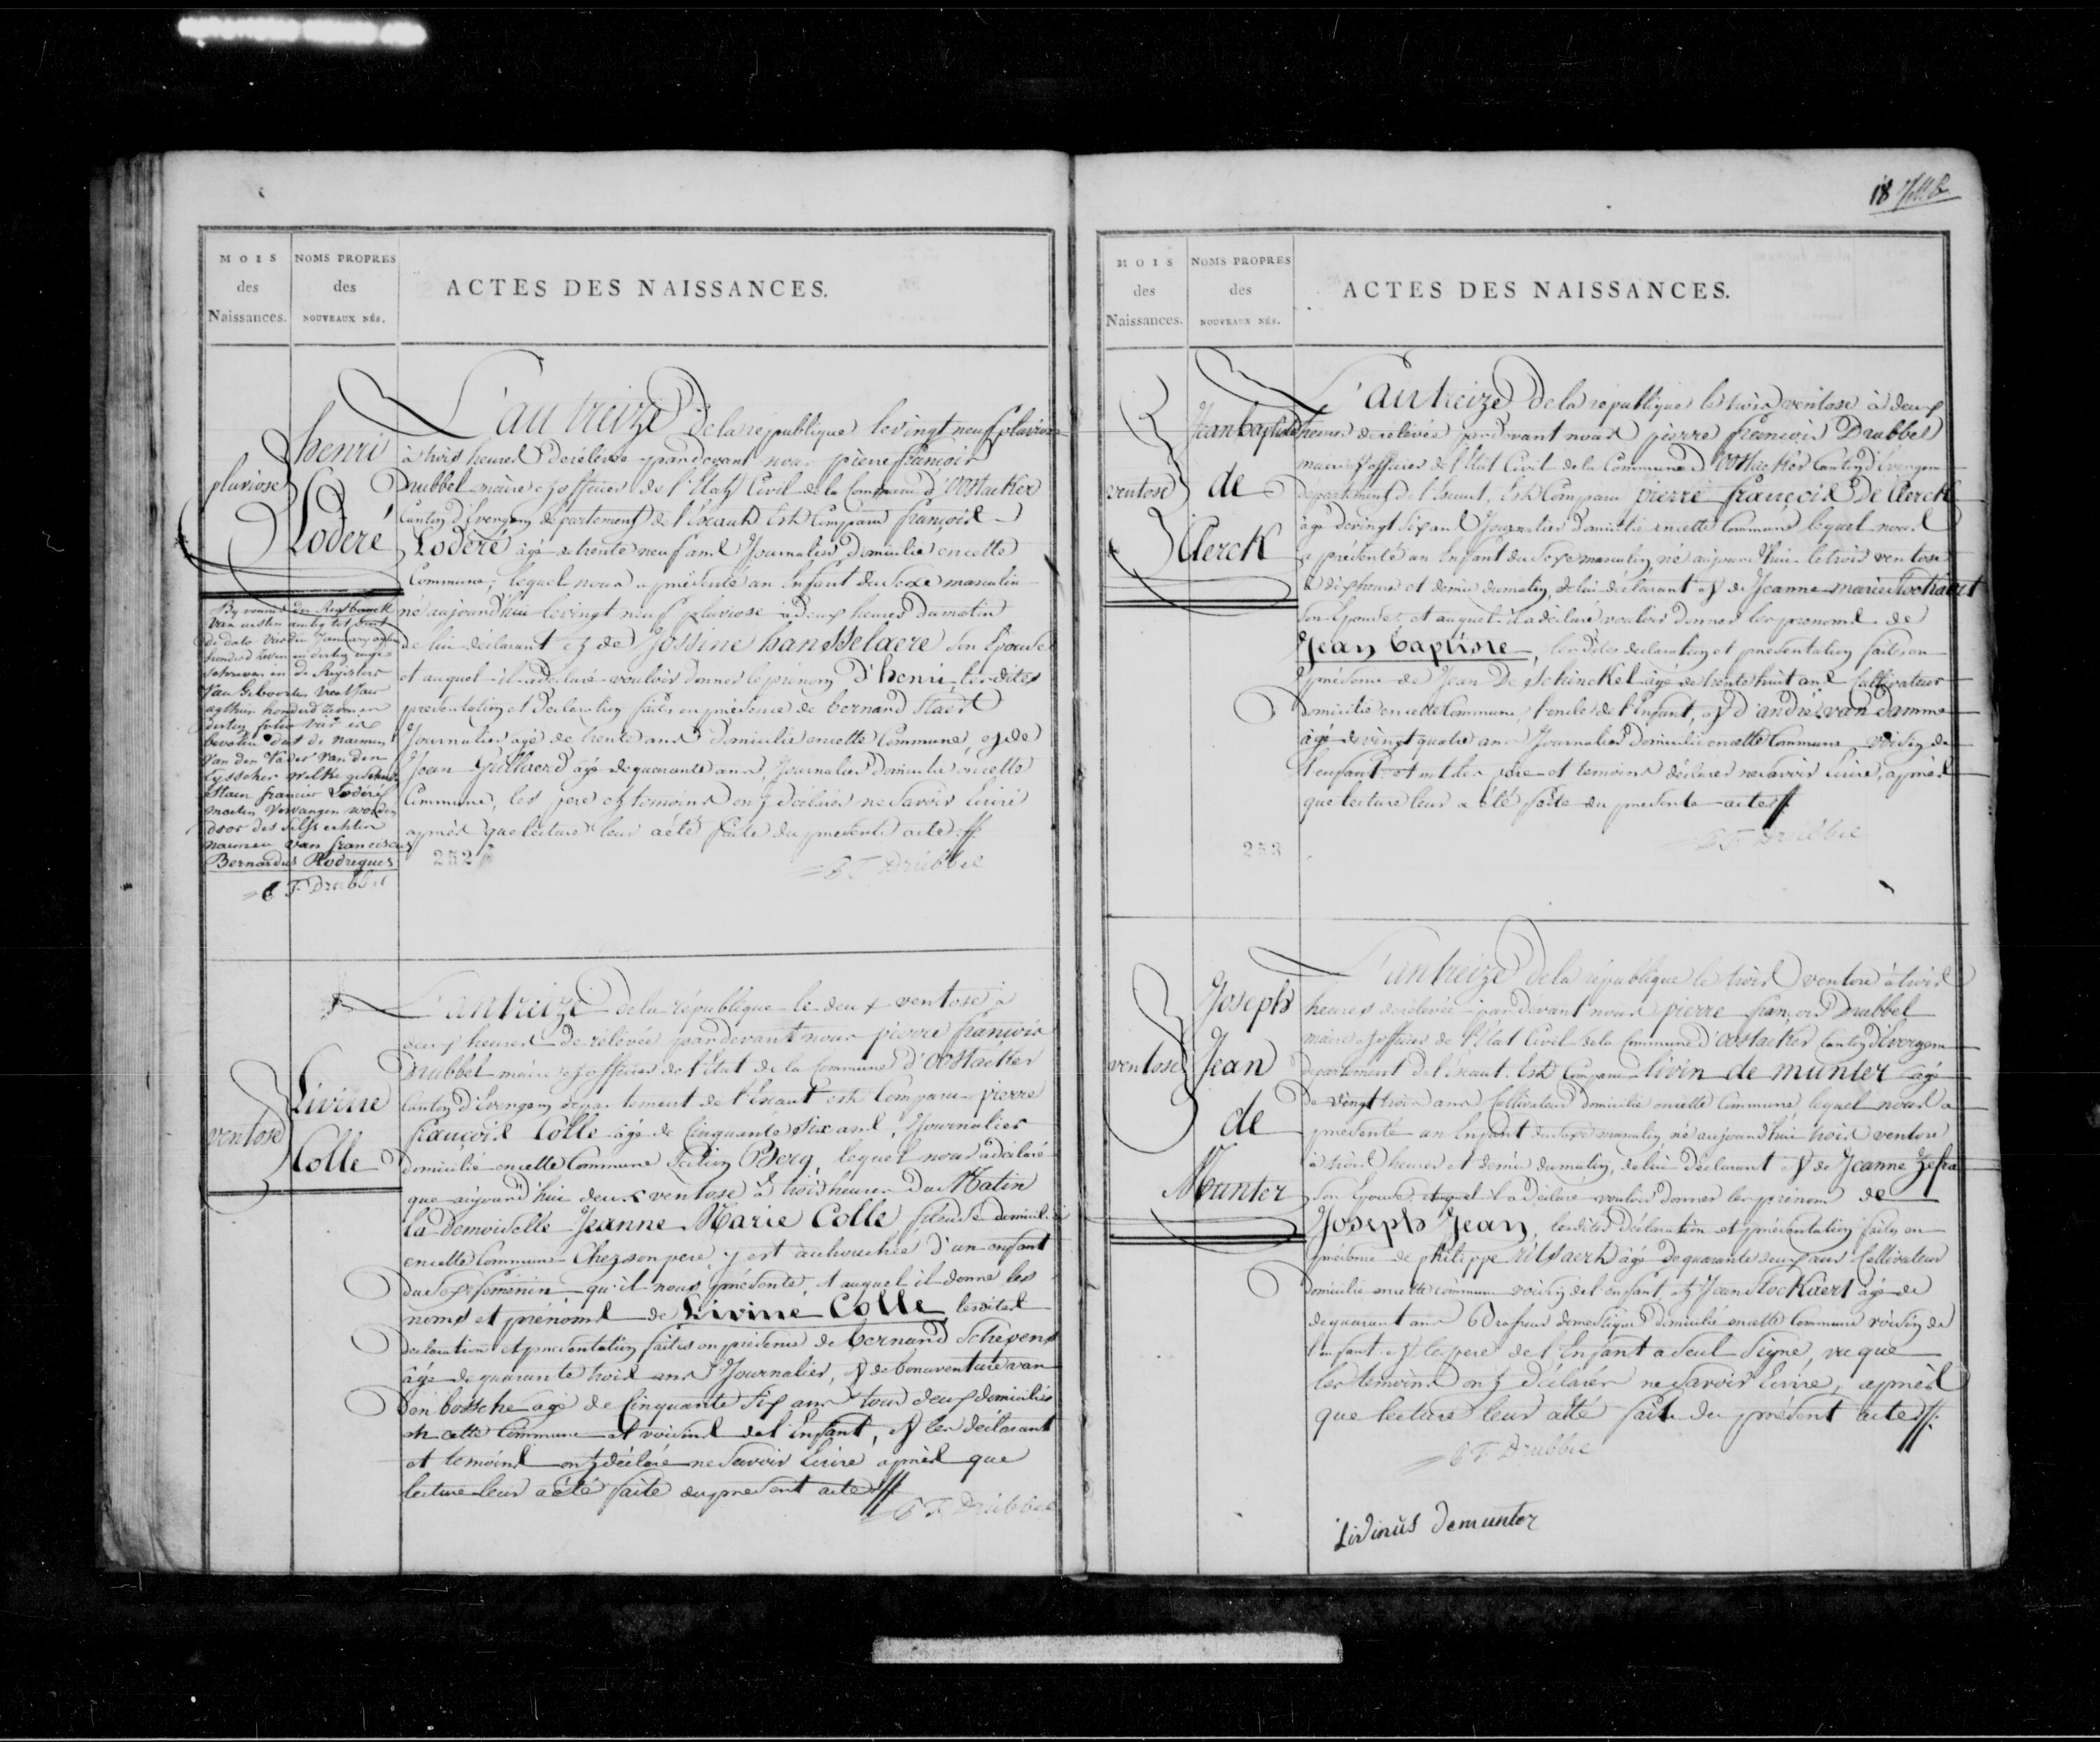 MOIS
des
Naissances.
NOMS PROPRES
des
NOUVEAUX NÉS.
ACTES DES NAISSANCES.
pluviose
henri
Loderé
L'an treize de la republique le vingt neuf pluviose
à trois heures de relevée pardevant nous pierre françois
Drubbel maire et officier de l'Etat Civil de la Commune d'Oostacker
Canton d'Evergem departement de l'Escaut Est Comparu françois
Loderé âgé de trente neuf ans Journalier domicilié en cette
Commune, lequel nous a présenté un Enfant du sexe masculin
né aujourd'hui le vingt neuf pluviose à deux heures du matin
de lui déclarant et de Jossine hansselaere son Epouse
et auquel il a declaré vouloir donner le prénom d'henri lesdites
presentation et declaration faites en presence de bernard Staes
Journalier agé de trente ans domicilié en cette Commune, et de
Jean Guillaerd âgé de quarante ans, Journalier domicilié en cette
Commune, les pere et temoins ont déclarer ne savoir Ecrire
après que lecture leur a été faite du present acte
252
P F Drubbel
By vonnis der Regtbanck
van eersten
de dato Januarij
honderd zeven en dertig inge-
schreven in de Registers
van Geboorten voor 't jaer
agthien honderd zeven en
dertig folio vijf is
bevolen dat de naemen
van den Vader van den
staen francies Loderé
moeten vervangen worden
door des selfs echten
naemen van franciscus
Bernardus Rodrigues
P F. Drubbel
ventose
Livine
Colle
L'an treize de la république le deux ventose à
deux heures de relevée pardevant nous pierre francois
Drubbel maire et officier de l'Etat de la Commune d'Oostacker
Canton d'Evergem departement de l'Escaut est Comparu pierre
françois Colle âgé de Cinquante six ans, Journalier
domicilié en cette Commune Section Berg, lequel nous a déclaré
que aujourd'hui deux ventose à trois heures du Matin
la Demoiselle Jeanne Marie Colle fileuse domicilié
en cette Commune Chez son pere, y est acchouchée d'un enfant
du sexe feminin qu'il nous présente, et auquel il donne les
noms et prénoms de Livine Colle lesdites
declaration et presentation faites en présence de bernard Schepens
âgé de quarante trois ans Journalier, et de bonaventure van
den bossche agé de Cinquante six ans tous deux domiciliés
en cette Commune et voisins de l'Enfant, et les déclarant
et temoins ont déclaré ne Savoir Ecrire après que
lecture leur a été faite du present acte
P F. Drubbel
18
MOIS
des
Naissances.
NOMS PROPRES
des
NOUVEAUX NÉS.
ACTES DES NAISSANCES.
ventose
Jean baptiste
de
Clerck
L'an treize de la republique le trois ventose à deux
heures de relevée pardevant nous pierre francois Drubbel
maire et officier de l'Etat Civil de la Commune d'Oostacker Canton d'Evergem
département de l'Escaut, Est Comparu pierre françois De Clerck
âgé de vingt six ans Journalier domicilié en cette Commune lequel nous
a présenté un Enfant du sexe masculin né aujourd'hui le trois ventose
à dix heures et demie du matin, de lui declarant et de Jeanne marie
son Epouse, et auquel il a déclaré vouloir donner les prenoms de
Jean baptiste, lesdites declaration et presentation faites en
présence de Jean De Schinckel âgé de trente huit ans Cultivateur
domicilié en cette Commune, l'oncle de l'Enfant, et d'andré van damme
âgé de vingt quatre ans Journalier domicilié en cette Commune voisin de
l'enfant et ont les père et temoins déclarer ne savoir Ecrire, après
que lecture leur a été faite du presente acte
253
P F. Drubbel
ventose
Joseph
Jean
de
Munter
L'an treize de la république le trois ventose à trois
heures de relevée pardevant nous pierre françois Drubbel
maire et officier de l'Etat Civil de la Commune d'Oostacker Canton d'Evergem
departement de l'Escaut Est Comparu livin de munter âgé
de vingt trois ans Cultivateur domicilié en cette Commune lequel nous a
presenté un Enfant du sexe masculin, né aujourd'hui trois ventose
à trois heures et demie du matin, de lui declarant et de Jeanne
son Epouse, auquel il a déclaré vouloir donner les prénoms de
Joseph Jean, lesdites déclaration et présentation faites en
présence de philippe âgé de quarante deux ans Cultivateur
domicilié en cette commune voisin de l'enfant et Jean Stockaert âgé de
de quarant ans domestique domicilié en cette Commune voisin de
l'enfant et le pere de l'Enfant a seul Signé, vu que
les temoins ont déclarér ne savoir Ecrire, après
que lecture leur a été faite du présent acte
P F. Drubbel
Livinus Demunter